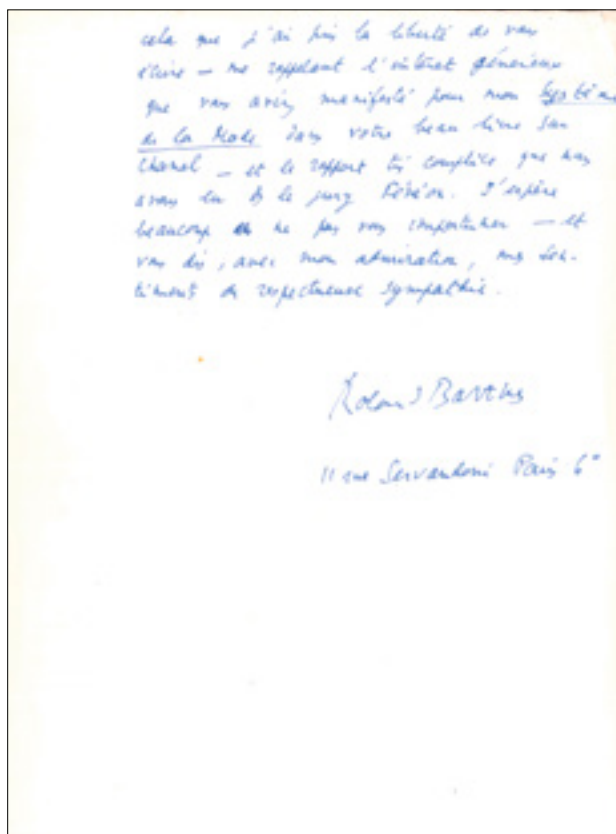 cela que j'ai pris la liberté de vous
écrire — me rappelant l'intérêt généreux
que vous aviez manifesté pour mon Système
de la Mode dans votre beau livre sur
Chanel — et le rapport très complice que nous
avons eu ds le jury Fénéon. J'espère
beaucoup ne pas vous importuner — et
vous dis, avec mon admiration, mes sen-
timents de respectueuse sympathie.
Roland Barthes
11 rue Servandoni Paris 6e